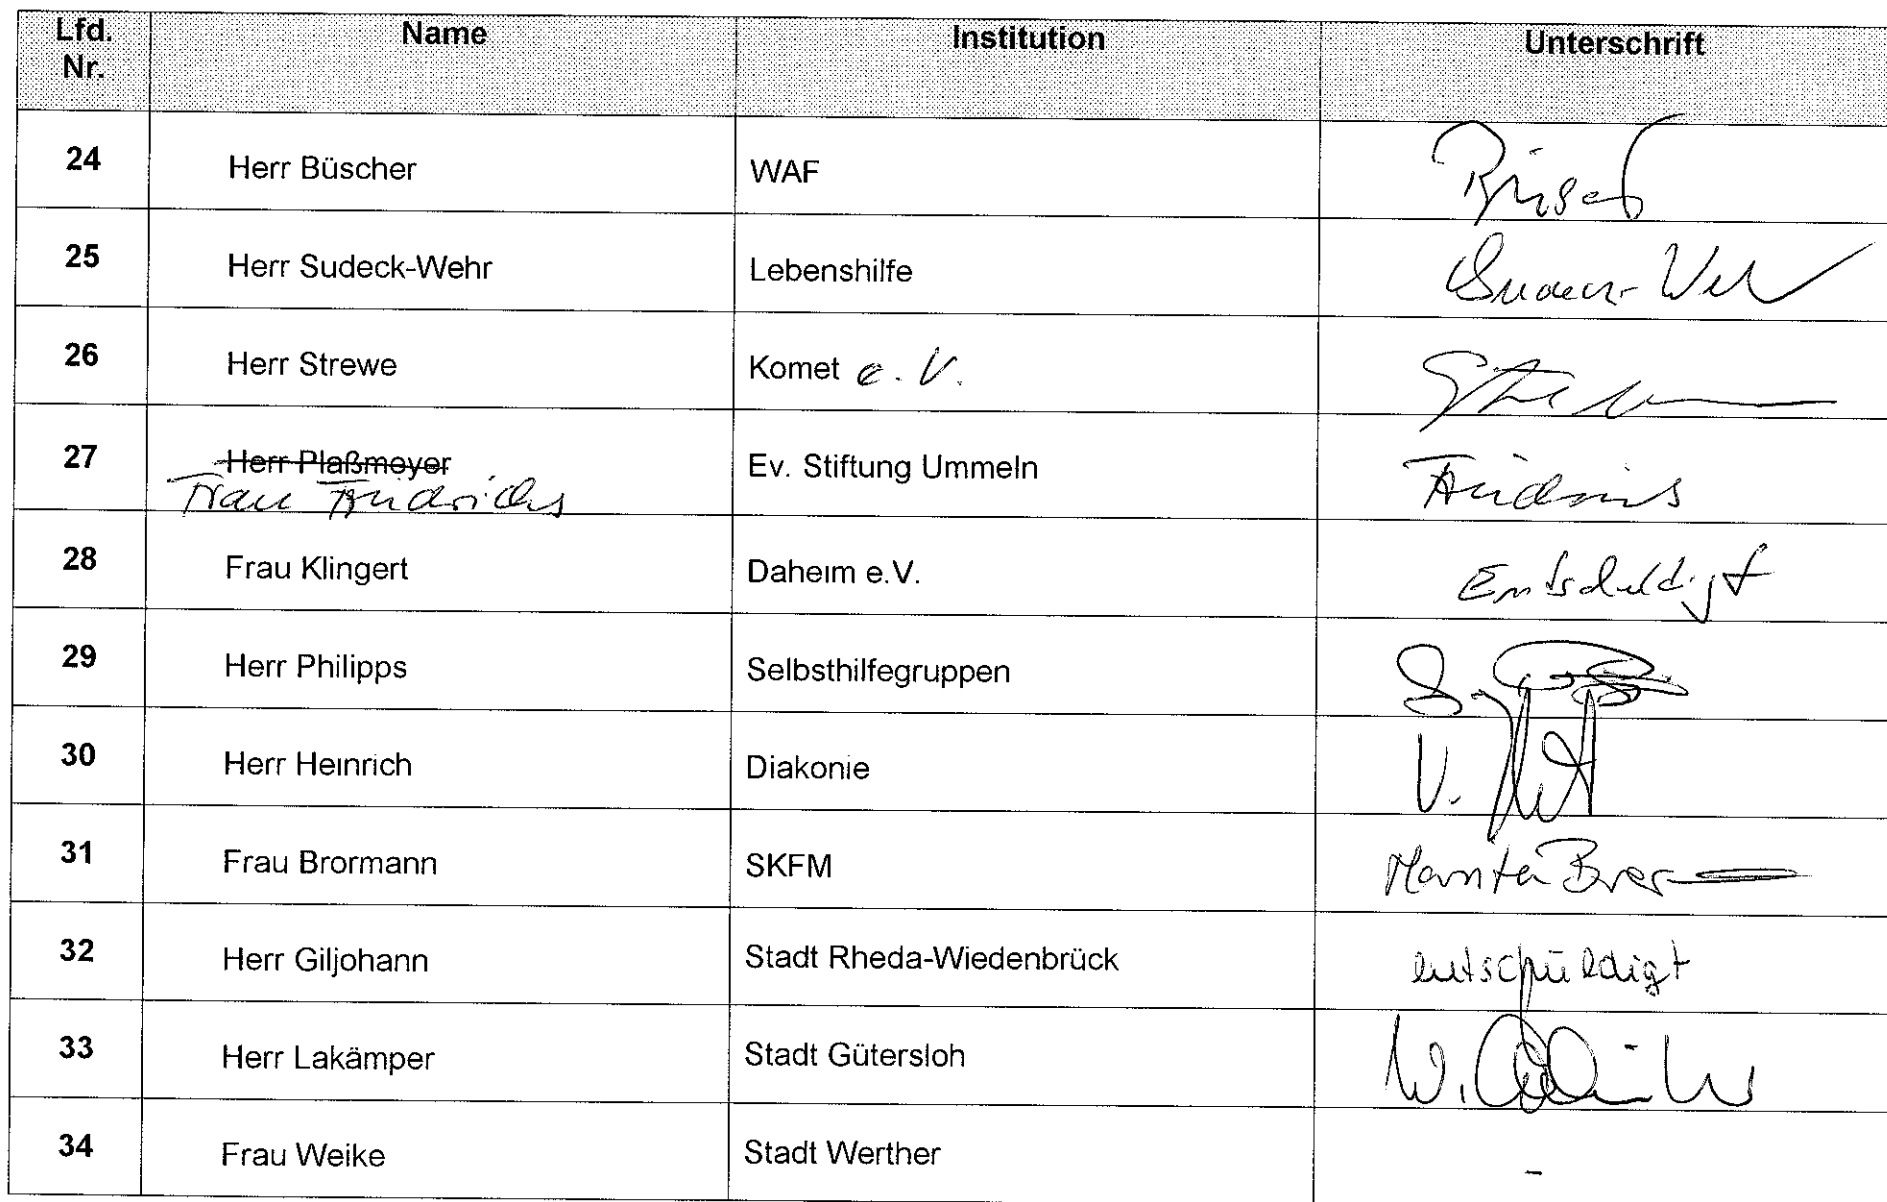 Lfd. Nr. Name Institution Unterschrift
24 Herr Büscher WAF
25 Herr Sudeck-Wehr Lebenshilfe Sudeck-Weh
26 Herr Strewe Komet e.V.
27 Herr Plaßmeyer Ev. Stiftung Ummeln
Frau Friedrichs
28 Frau Klingert Daheim e.V. Entschuldigt
29 Herr Philipps Selbsthilfegruppen
30 Herr Heinrich Diakonie
31 Frau Brormann SKFM
32 Herr Giljohann Stadt Rheda-Wiedenbrück entschuldigt
33 Herr Lakämper Stadt Gütersloh
34 Frau Weike Stadt Werther -